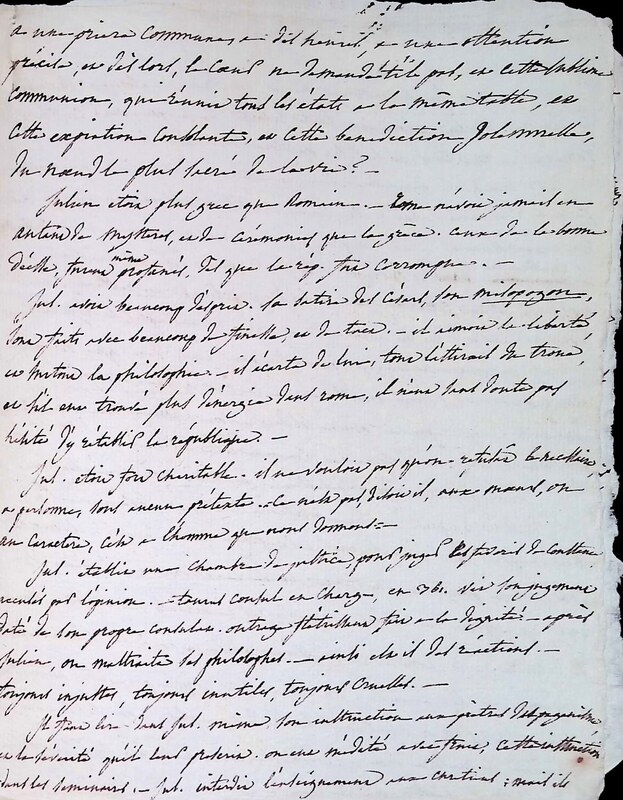 a une priere commune, a des heures, a une attention
précise, et dès lors, le coeur ne demande t'il pas, et cette sublime
communion, qui réunit tous les états a la même table, et
cette expiation consolante, et cette benediction solemnelle,
du noeud le plus sacré de la vie? —
Julien etoit plus grec que Romain. — Rome n'avoit jamais eu
autant de mysteres, et de cérémonies que la grèce. ceux de la bonne
déesse, furent même profanés, dès que la rép. fut corrompue. —
Jul. avoit beaucoup d'esprit. sa satire des Césars, son misopogon,
sont faits avec beaucoup de finesse, et de tact. — il aimoit la liberté,
et même la philosophie. — il écarta de lui, tout l'attirail du trone,
et s'il eut trouvé plus d'énergie dans rome, il n'eut sans doute pas
hésité d'y rétablir la république. —
Jul. etoit fort charitable. il ne vouloit pas qu'on refusât le necessaire,
a personne, sous aucun prétexte. — ce n'est pas, disoit il, aux moeurs, ou
au caractere, c'est a l'homme que nous donnons =
Jul. établit une chambre de justice, pour juger les favoris de Constance
accusés par l'opinion. — taurus consul en charge, en 361. vit son jugement
daté de son propre consulat. outrage flétrissant fait a la dignité. — après
Julien, on maltraita les philosophes. — ainsi en est il des réactions. —
toujours injustes, toujours inutiles, toujours cruelles. —
Il faut lire dans Jul. même son instruction aux prêtres du paganisme,
et la sévérité qu'il leur prescrit. on eut médité avec fruit, cette instruction
dans les seminaires. — Jul. interdit l'enseignement aux chretiens; mais ils